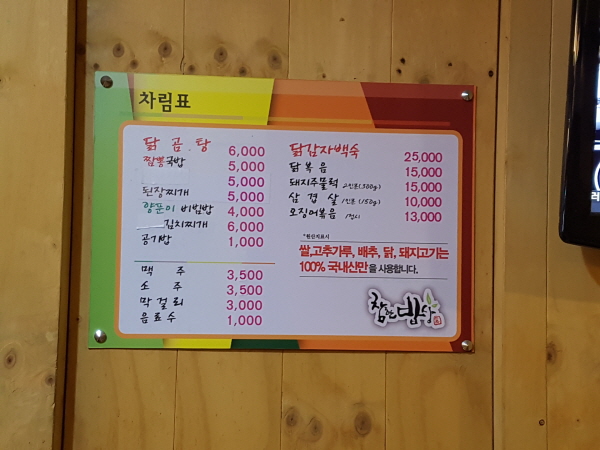 차림표
닭 곰 탕 6,000
짬뽕국밥 5,000
5,000
된장찌개 5,000
양푼이 비빔밥 4,000
김치찌개 6,000
공기밥 1,000
맥 주 3,500
소 주 3,500
막걸리 3,000
음료수 1,000
닭감자백숙 25,000
닭볶음 15,000
돼지주물럭 2인분(300g) 15,000
삼 겹 살 1인분(150g) 10,000
오징어볶음 1접시 13,000
*원산지표시
쌀,고추가루, 배추, 닭, 돼지고기는
100% 국내산만을 사용합니다.
참한밥상